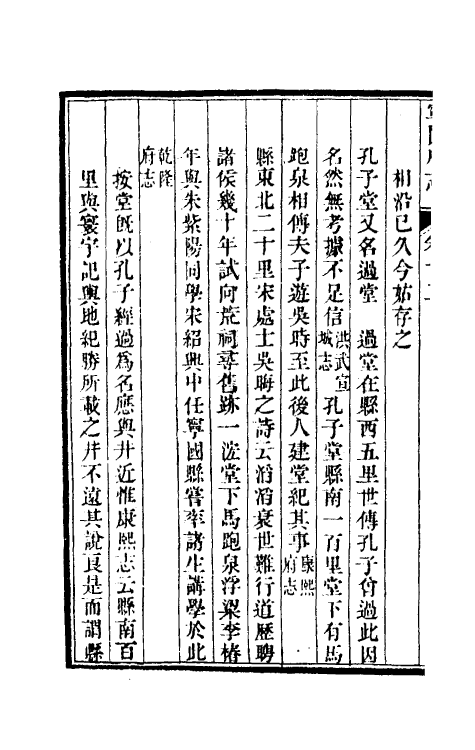 相沿已久今姑存之
孔子堂又名過堂　過堂在縣西五里世傳孔子曾過此因
名然無考據不足信洪武宣城志　孔子堂縣南一百里堂下有馬
跑泉相傳夫子遊吳時至此後人建堂紀其事康熙府志
縣東北二十里宋處士吳晦之詩云滔滔衰世難行道歷聘
諸侯幾十年試向荒祠尋舊跡一泓堂下馬跑泉浮梁李椿
年與朱紫陽同學宋紹興中任寧國縣嘗率諸生講學於此
乾隆府志
按堂既以孔子經過爲名應與井近惟康熙志云縣南百
里與寰宇記輿地紀勝所載之井不遠其說良是而謂縣